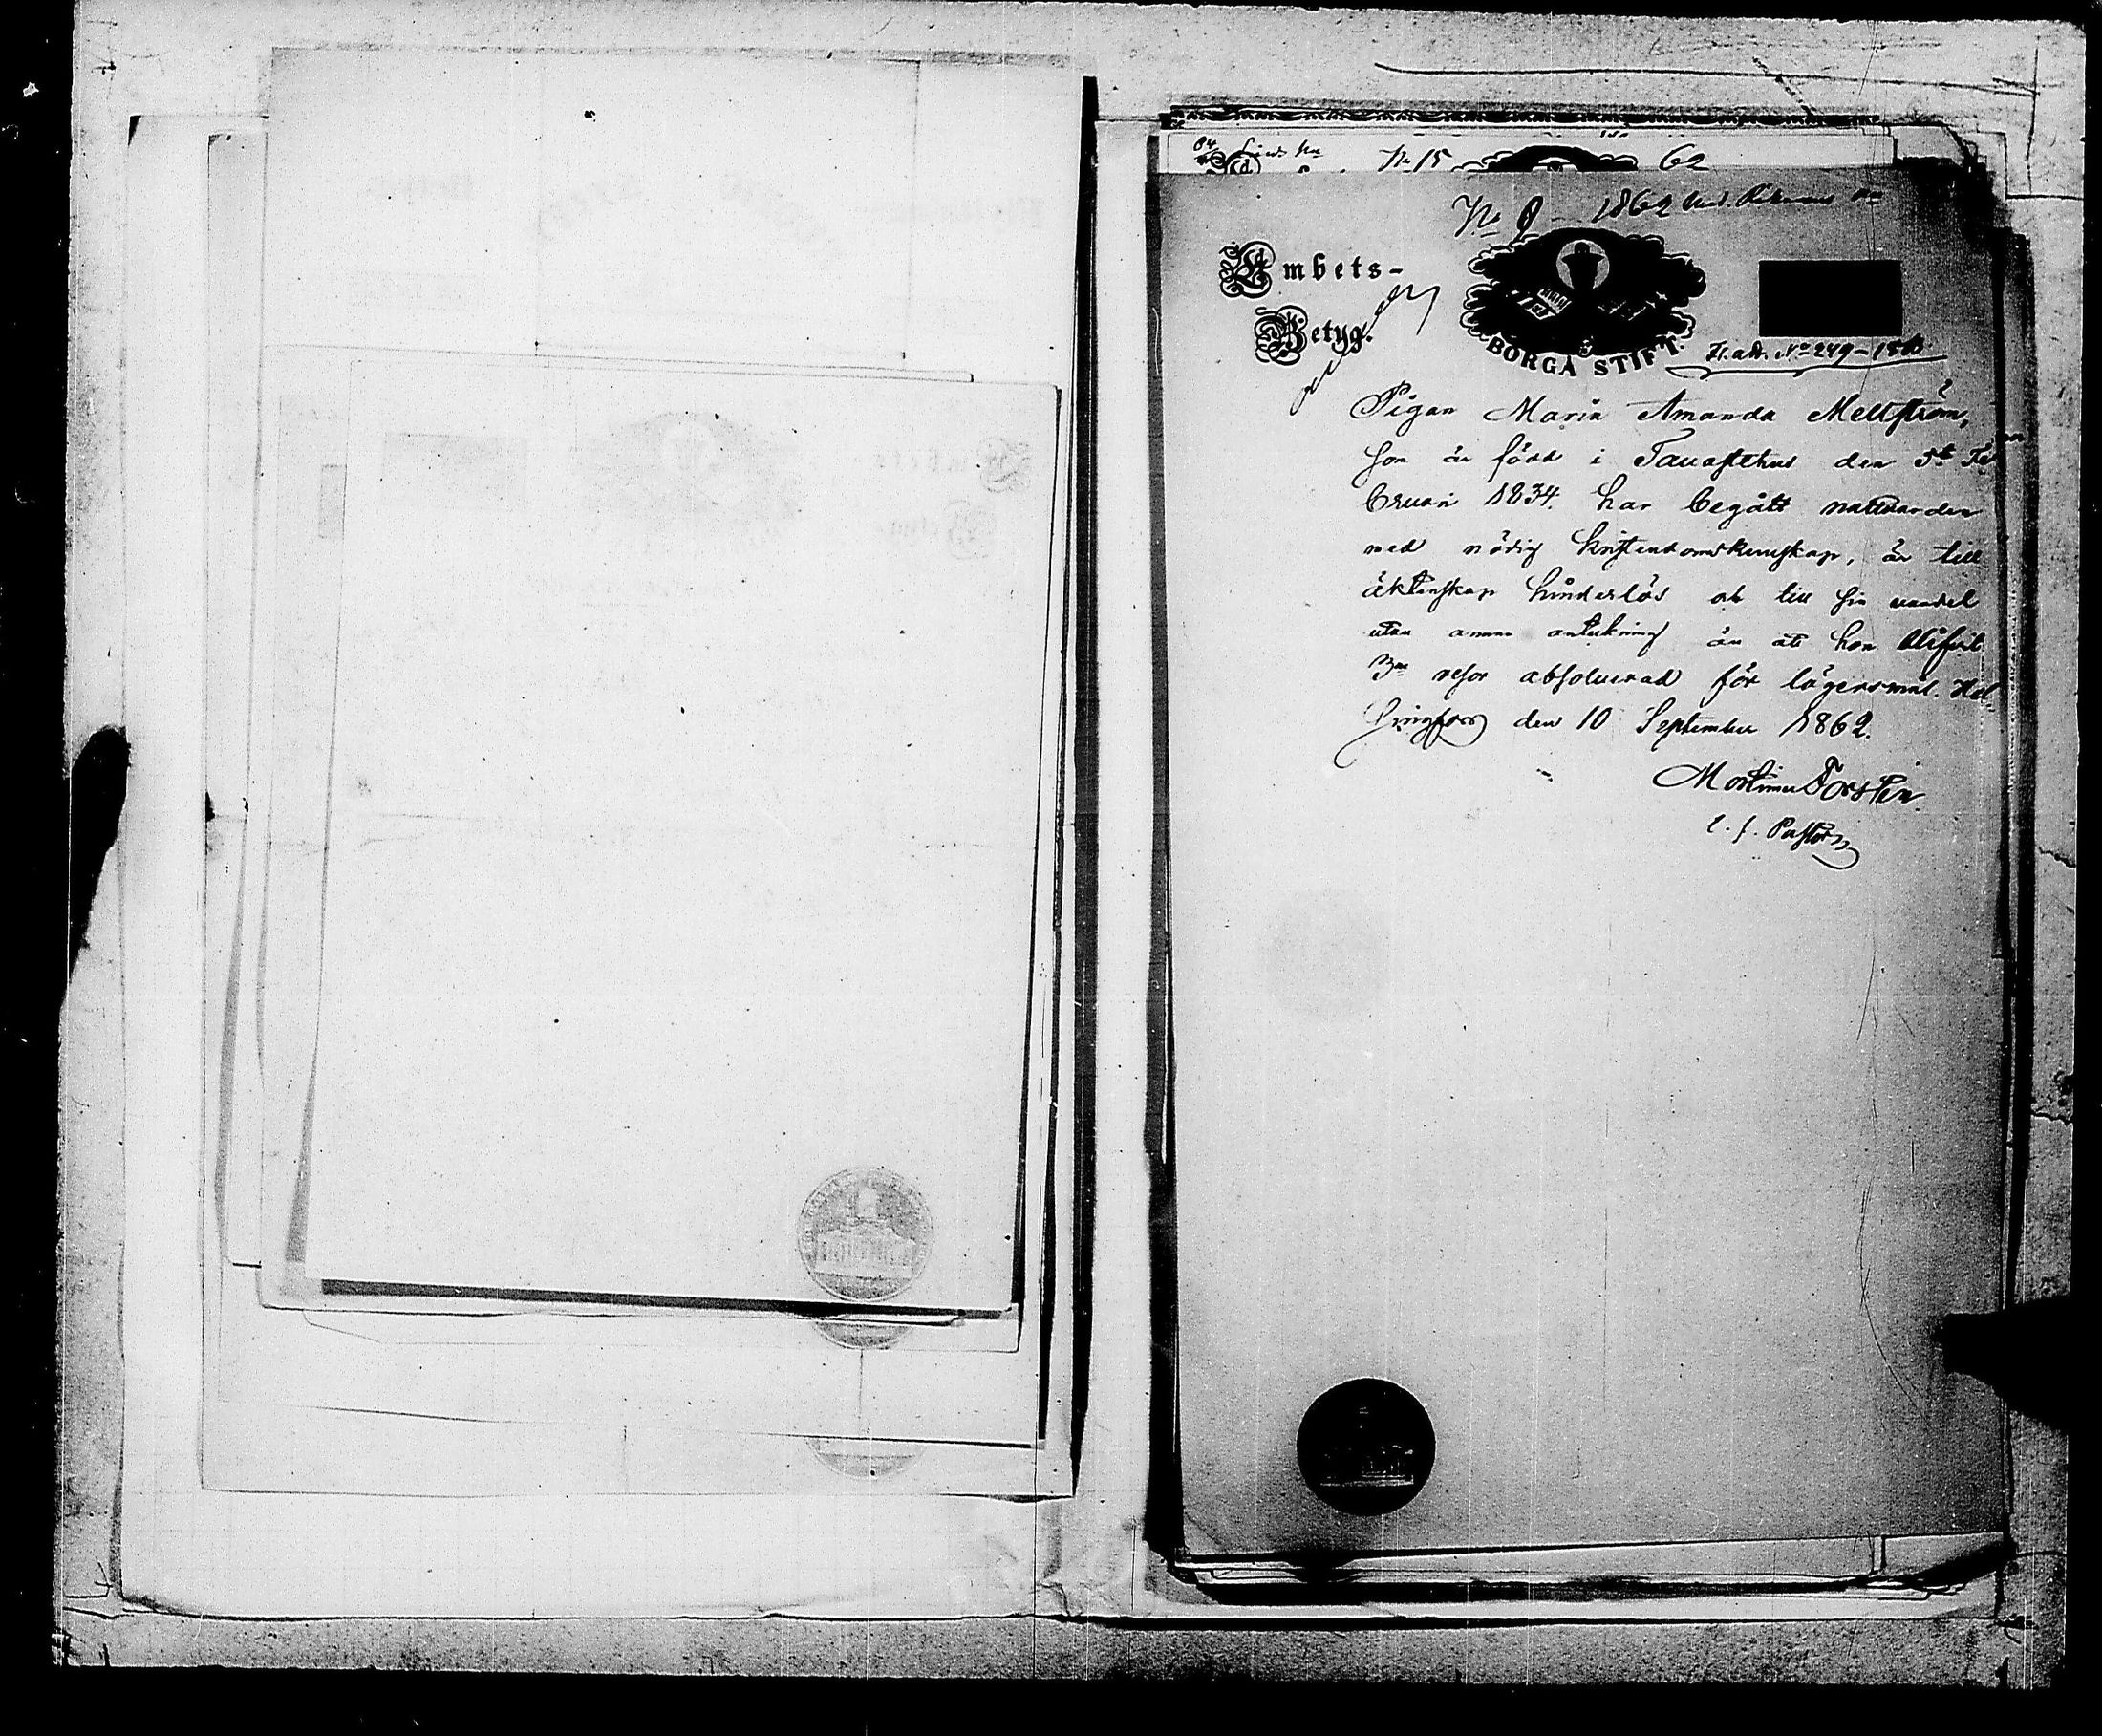 No 15
62
No 9 1862
Embets-
Betyg.
BORGÅ STIFT.
Fl. att. No 249 – 1
Pigan Maria Amanda Mellström,
som är född i Tavastehus den 5te Fe
bruari 1834. har begått nattvarden
med nödig kristendomskunskap, är till
äktenskap hinderlös och till sin vandel
utan annan anteckning än att hon blifvit
3ne resor absolverad för lägersmål. Hel-
singfors den 10 September 1862.
Mortimer Forstén.
t. f. Pastor